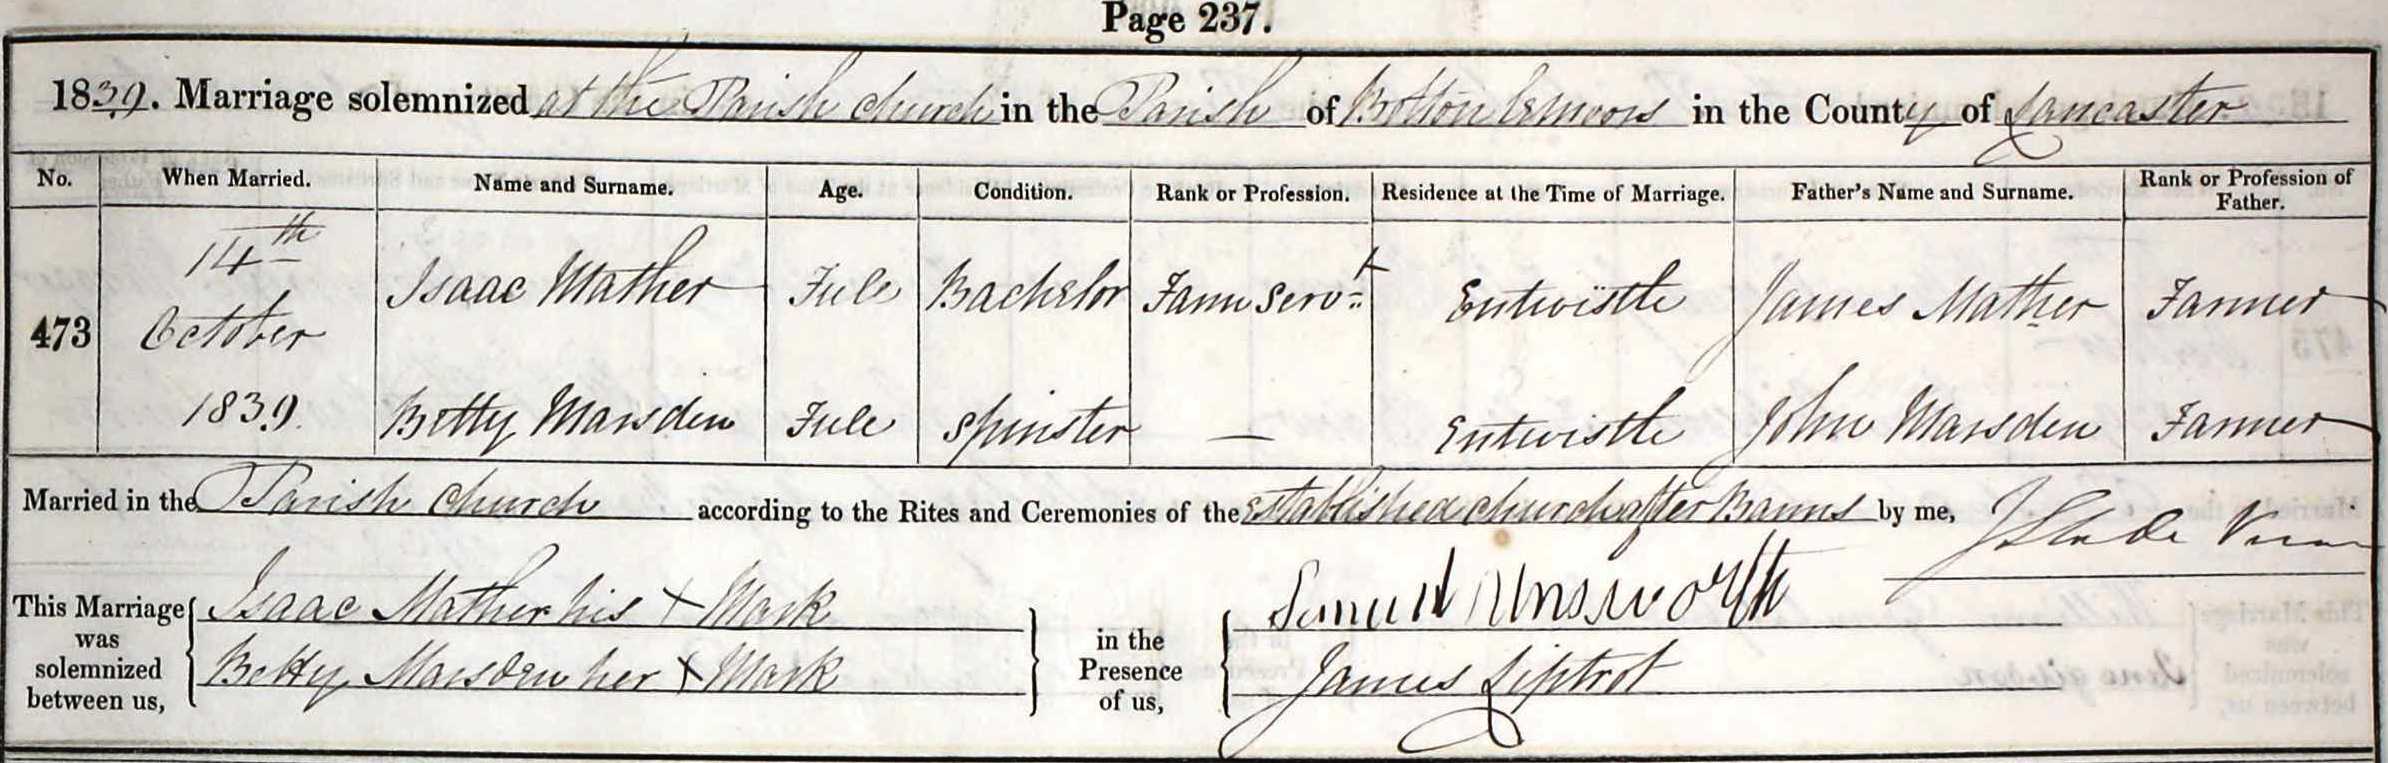 Page 237.
1839. Marriage solemnized at the Parish church in the Parish of Bolton le moors in the County of Lancaster
No. When Married. Name and Surname. Age. Condition. Rank or Profession. Residence at the Time of Marriage. Father's Name and Surname. Rank or Profession of Father.
473 14th October 1839.
Isaac Mather Full Bachelor Farm Servt Entwistle James Mather Farmer
Betty Marsden Full Spinster — Entwistle John Marsden Farmer
Married in the Parish church according to the Rites and Ceremonies of the Established church after Banns by me, J Slade Vicar
This Marriage was solemnized between us,
Isaac Mather his X Mark
Betty Marsden her X Mark
in the Presence of us,
Samuel Unsworth
James Liptrot